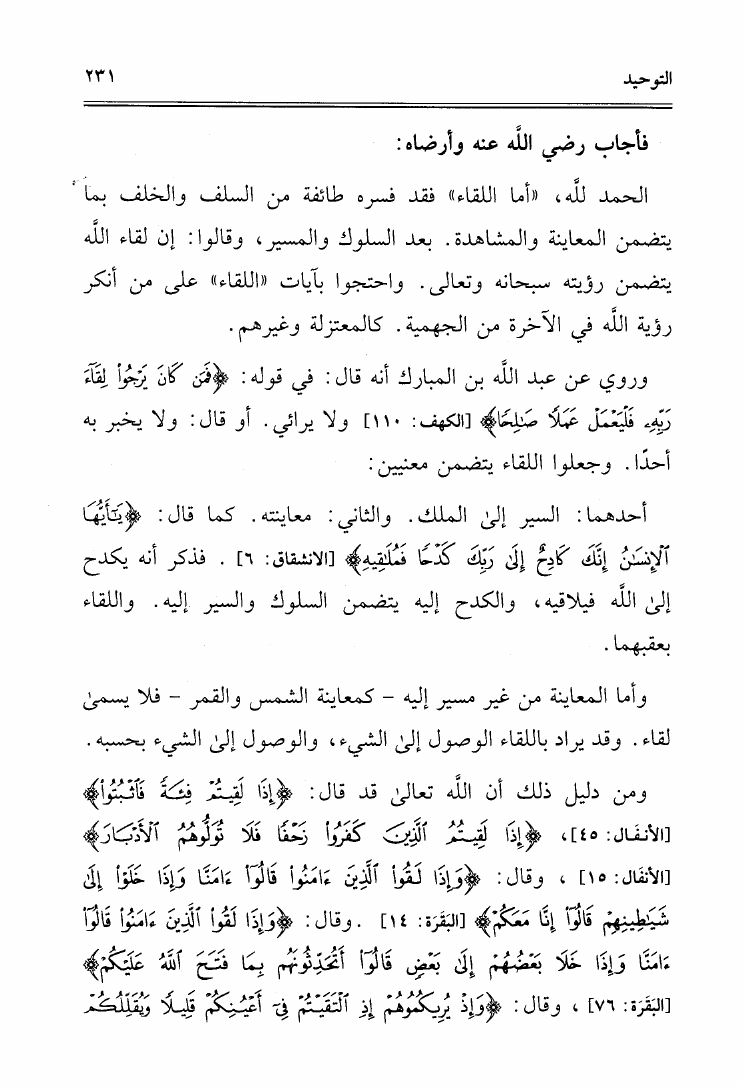 التوحيد ٢٣١
فأجاب رضي اللَّه عنه وأرضاه:
الحمد للَّه، «أما اللقاء» فقد فسره طائفة من السلف والخلف بما
يتضمن المعاينة والمشاهدة. بعد السلوك والمسير، وقالوا: إن لقاء اللَّه
يتضمن رؤيته سبحانه وتعالى. واحتجوا بآيات «اللقاء» على من أنكر
رؤية اللَّه في الآخرة من الجهمية. كالمعتزلة وغيرهم.
وروي عن عبد اللَّه بن المبارك أنه قال: في قوله: ﴿فَمَن كَانَ يَرْجُوا۟ لِقَآءَ
رَبِّهِۦ فَلْيَعْمَلْ عَمَلًا صَـٰلِحًا﴾ [الكهف: ١١٠] ولا يرائي. أو قال: ولا يخبر به
أحدًا. وجعلوا اللقاء يتضمن معنيين:
أحدهما: السير إلىٰ الملك. والثاني: معاينته. كما قال: ﴿يَـٰٓأَيُّهَا
ٱلْإِنسَـٰنُ إِنَّكَ كَادِحٌ إِلَىٰ رَبِّكَ كَدْحًا فَمُلَـٰقِيهِ﴾ [الانشقاق: ٦] . فذكر أنه يكدح
إلىٰ اللَّه فيلاقيه، والكدح إليه يتضمن السلوك والسير إليه. واللقاء
يعقبهما.
وأما المعاينة من غير مسير إليه – كمعاينة الشمس والقمر – فلا يسمىٰ
لقاء. وقد يراد باللقاء الوصول إلىٰ الشيء، والوصول إلىٰ الشيء بحسبه.
ومن دليل ذلك أن اللَّه تعالىٰ قد قال: ﴿إِذَا لَقِيتُمْ فِئَةً فَٱثْبُتُوا۟﴾
[الأنفال: ٤٥]، ﴿إِذَا لَقِيتُمُ ٱلَّذِينَ كَفَرُوا۟ زَحْفًا فَلَا تُوَلُّوهُمُ ٱلْأَدْبَارَ﴾
[الأنفال: ١٥] ، وقال: ﴿وَإِذَا لَقُوا۟ ٱلَّذِينَ ءَامَنُوا۟ قَالُوٓا۟ ءَامَنَّا وَإِذَا خَلَوْا۟ إِلَىٰ
شَيَـٰطِينِهِمْ قَالُوٓا۟ إِنَّا مَعَكُمْ﴾ [البَقَرَة: ١٤] .وقال: ﴿وَإِذَا لَقُوا۟ ٱلَّذِينَ ءَامَنُوا۟ قَالُوٓا۟
ءَامَنَّا وَإِذَا خَلَا بَعْضُهُمْ إِلَىٰ بَعْضٍ قَالُوٓا۟ أَتُحَدِّثُونَهُم بِمَا فَتَحَ ٱللَّهُ عَلَيْكُمْ﴾
[البَقَرَة: ٧٦] ، وقال: ﴿وَإِذْ يُرِيكُمُوهُمْ إِذِ ٱلْتَقَيْتُمْ فِىٓ أَعْيُنِكُمْ قَلِيلًا وَيُقَلِّلُكُمْ